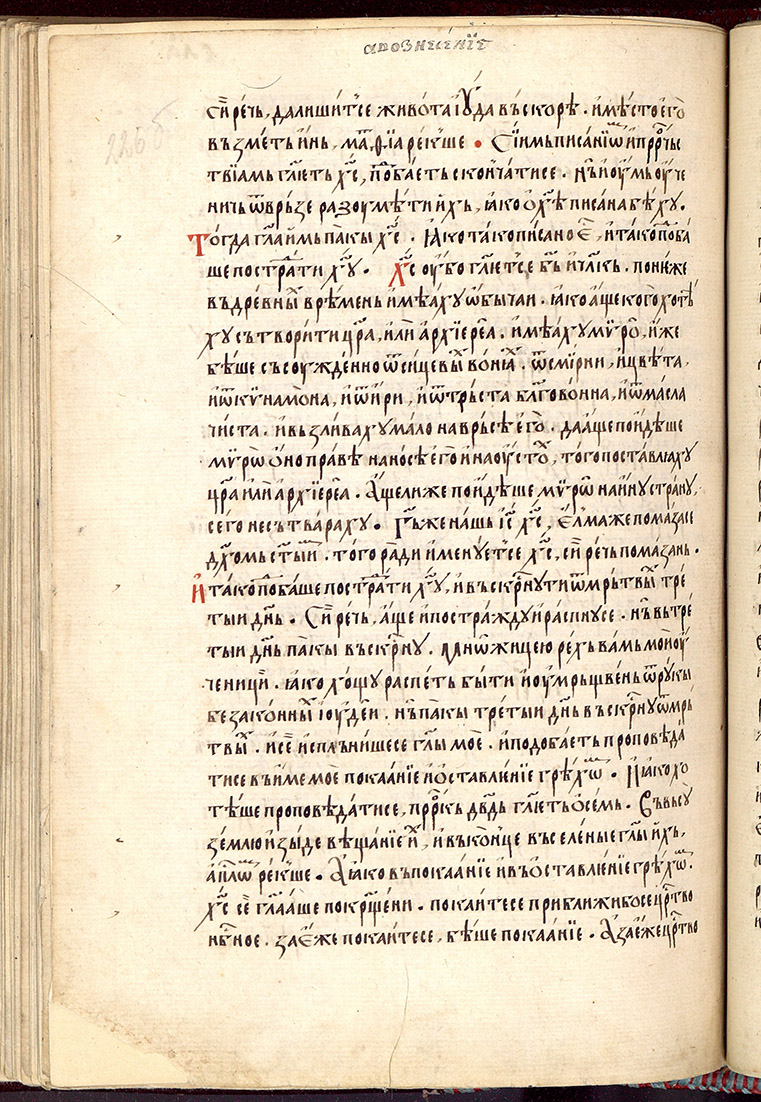 а҆ вознесе́нїе
сі́и рѣ́чь, да лиши́т се живо́та і҆ю́да въскорѣ. и҆ мѣ́сто е҆го̀
въз̾ме́ть и҆́нь, маⷮѳїа ре́кꙋше · Сїи́мь писа́нїѡⷨ и҆ прⷪ҇рчьс
твїамь гл҃е́ть хⷭ҇, поⷣба́еть сконча́ти се. нъ и҆ оу҆мь оу҆че
ничь ѿврь́зе разоумѣ́ти и҆́хь, ꙗко ѡ҆ хⷭ҇ѣ писана бѣ́хꙋ.
То́гда гл҃а и҆́мь па́кы хⷭ҇. Ꙗко та́ко пи́сано є҆ⷭ҇, и҆ та́ко поⷣба́
ше постра́ти хⷭ҇ꙋ. Хⷭ҇ оу҆́бо гл҃е́т се бг҃ь и҆ чл҃кь. поне́же
въ дре́внїи вре́мень и҆мѣа́хꙋ ѡ҆бы́чаи. ꙗко а҆́ще кого̀ хотѣ́
хꙋ сътвори́ти цр҃а, и҆лѝ а҆рхїере́а. и҆мѣа́хꙋ мѵ́ро, и҆́же
бѣ́ше съсоужде́нно ѿ си́цевыⷯ во́нїаⷯ. ѿ смѵ́рни, и҆ цвѣ́та,
и҆ ѿ кѵнамо́на, и҆ ѿ и҆́ри, и҆ ѿ трь́ста бл҃гово́нна, и҆ ѿ ма́сла
чи́ста. и҆ възлива́хꙋ ма́ло на врь́сѣ е҆го̀. да а҆́ще пои́деше
мѵ́рѡ ѡ҆но пра́вѣ на но́сѣ е҆го̀ и҆ на оу҆сто̀, то́го поставлꙗ́хꙋ
цр҃а и҆лѝ а҆рхїере́а. А҆́ще ли же пои́деше мѵ́рѡ на и҆́нꙋ странꙋ,
сего̀ не сътва́рахꙋ. Гь҃ же на́шь і҆с҃ хⷭ҇, є҆лма́же пома́за се
дх҃омь ст҃ы́мь. то́го ра́ди и҆менꙋ́ет се хⷭ҇, сі́и рѣ́чь пома́зань.
И҆ та́ко поⷣба́ше постра́ти хⷭ҇ꙋ, и҆ въскрⷭ҇нꙋти ѿ мрь́твыⷯ тре́
тыи дн҃ь. Сі́и рѣ́чь, а҆́ще и҆ постра́ждꙋ и҆ ра́спнꙋ се. нъ въ тре́
тыи дн҃ь па́кы въскрⷭ҇нꙋ. Мнѡ́жищею ре́хь ва́мь мои оу҆
ченици. ꙗко хо́щꙋ распе́ть бы́ти и҆ оу҆мрьщве́нь ѿ рꙋ́кы
безако́нныⷯ і҆оу҆де́и. нъ па́кы тре́тыи дн҃ь въскрⷭ҇нꙋ ѿ мрь́
твыⷯ. и҆ сѐ и҆спльни́ше се гл҃ы моѐ. и҆ подоба́еть проповѣ́да
ти се въ и҆́ме моѐ покаа́нїе и҆ ѡ҆ставлѥ́нїе грѣхѡⷨ. И҆ ꙗко хо
тѣ́ше проповѣ́дати се, прⷪ҇ркь дв҃дь гл҃е́ть ѡ҆ се́мь. Въ всꙋ̀
зе́млю и҆зы́де вѣща́нїе и҆ⷯ, и҆ въ ко́нце въселе́ные гл҃ы и҆́хь,
а҆пⷭ҇лѡⷨ ре́кꙋше. А҆ ꙗко въ покаа́нїе и҆ въ ѡ҆ставлѥ́нїе грѣхѡⷨ.
хⷭ҇ сѐ гл҃аа́ше по крⷭ҇ще́ни. пока́ите се приближи́ бо се црⷭ҇тво
нбⷭ҇ное. за є҆́же пока́ите се, бѣ́ше покаа́нїе. А҆ за є҆́же црⷭ҇тво